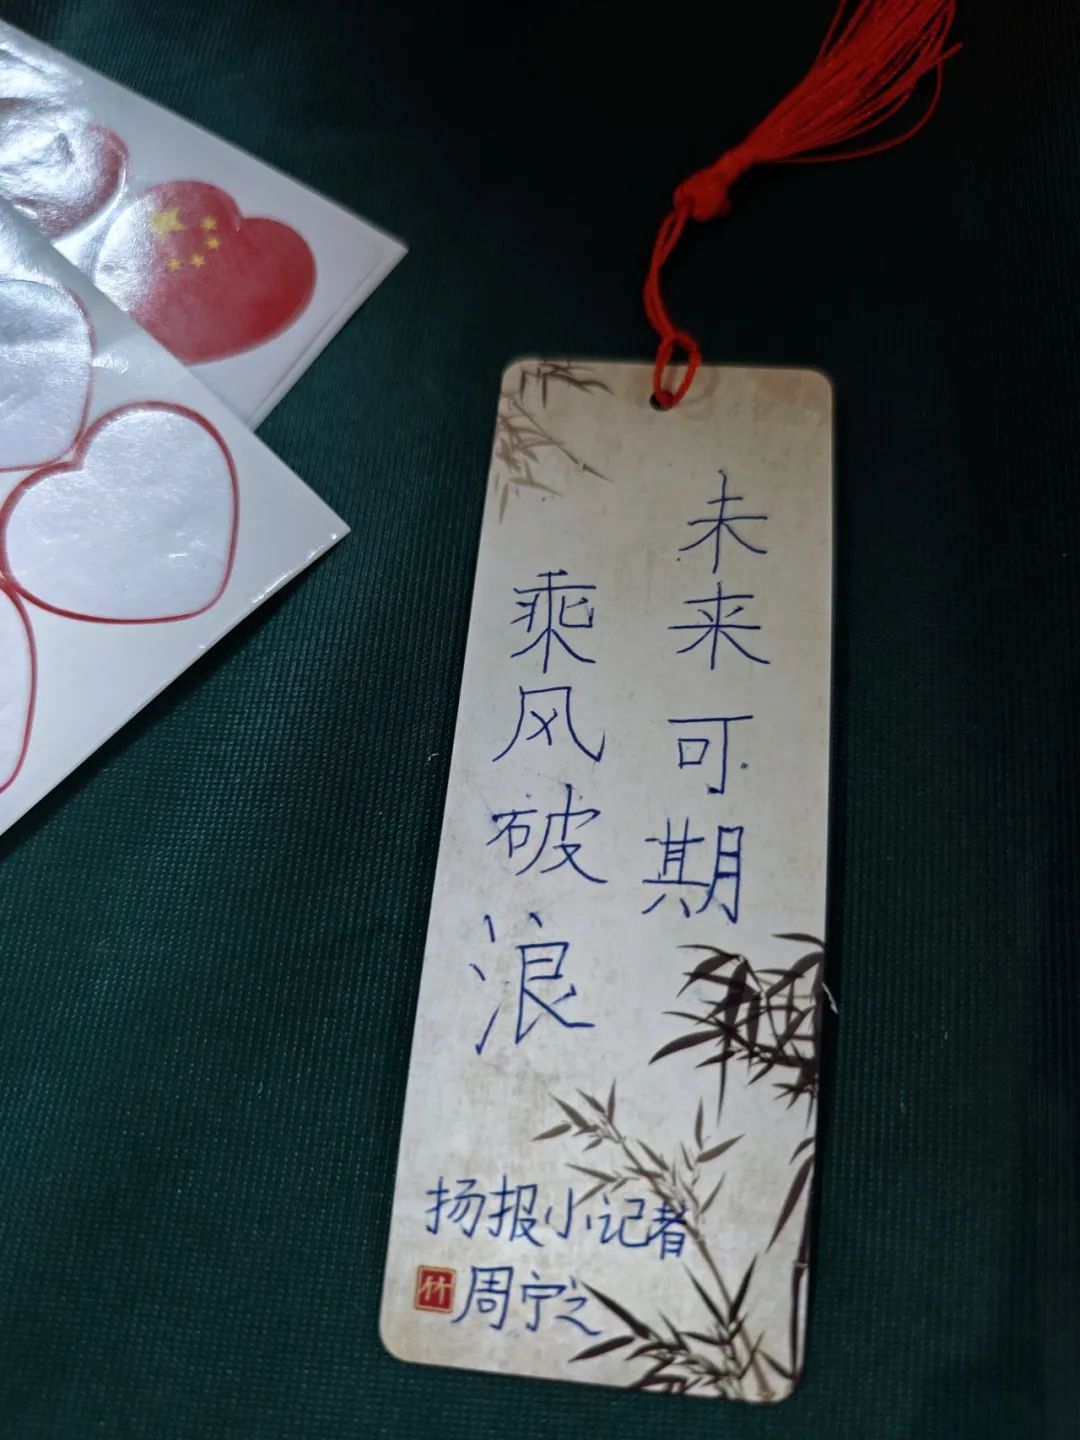 未来可期
乘风破浪
扬报小记者
竹
周宁之